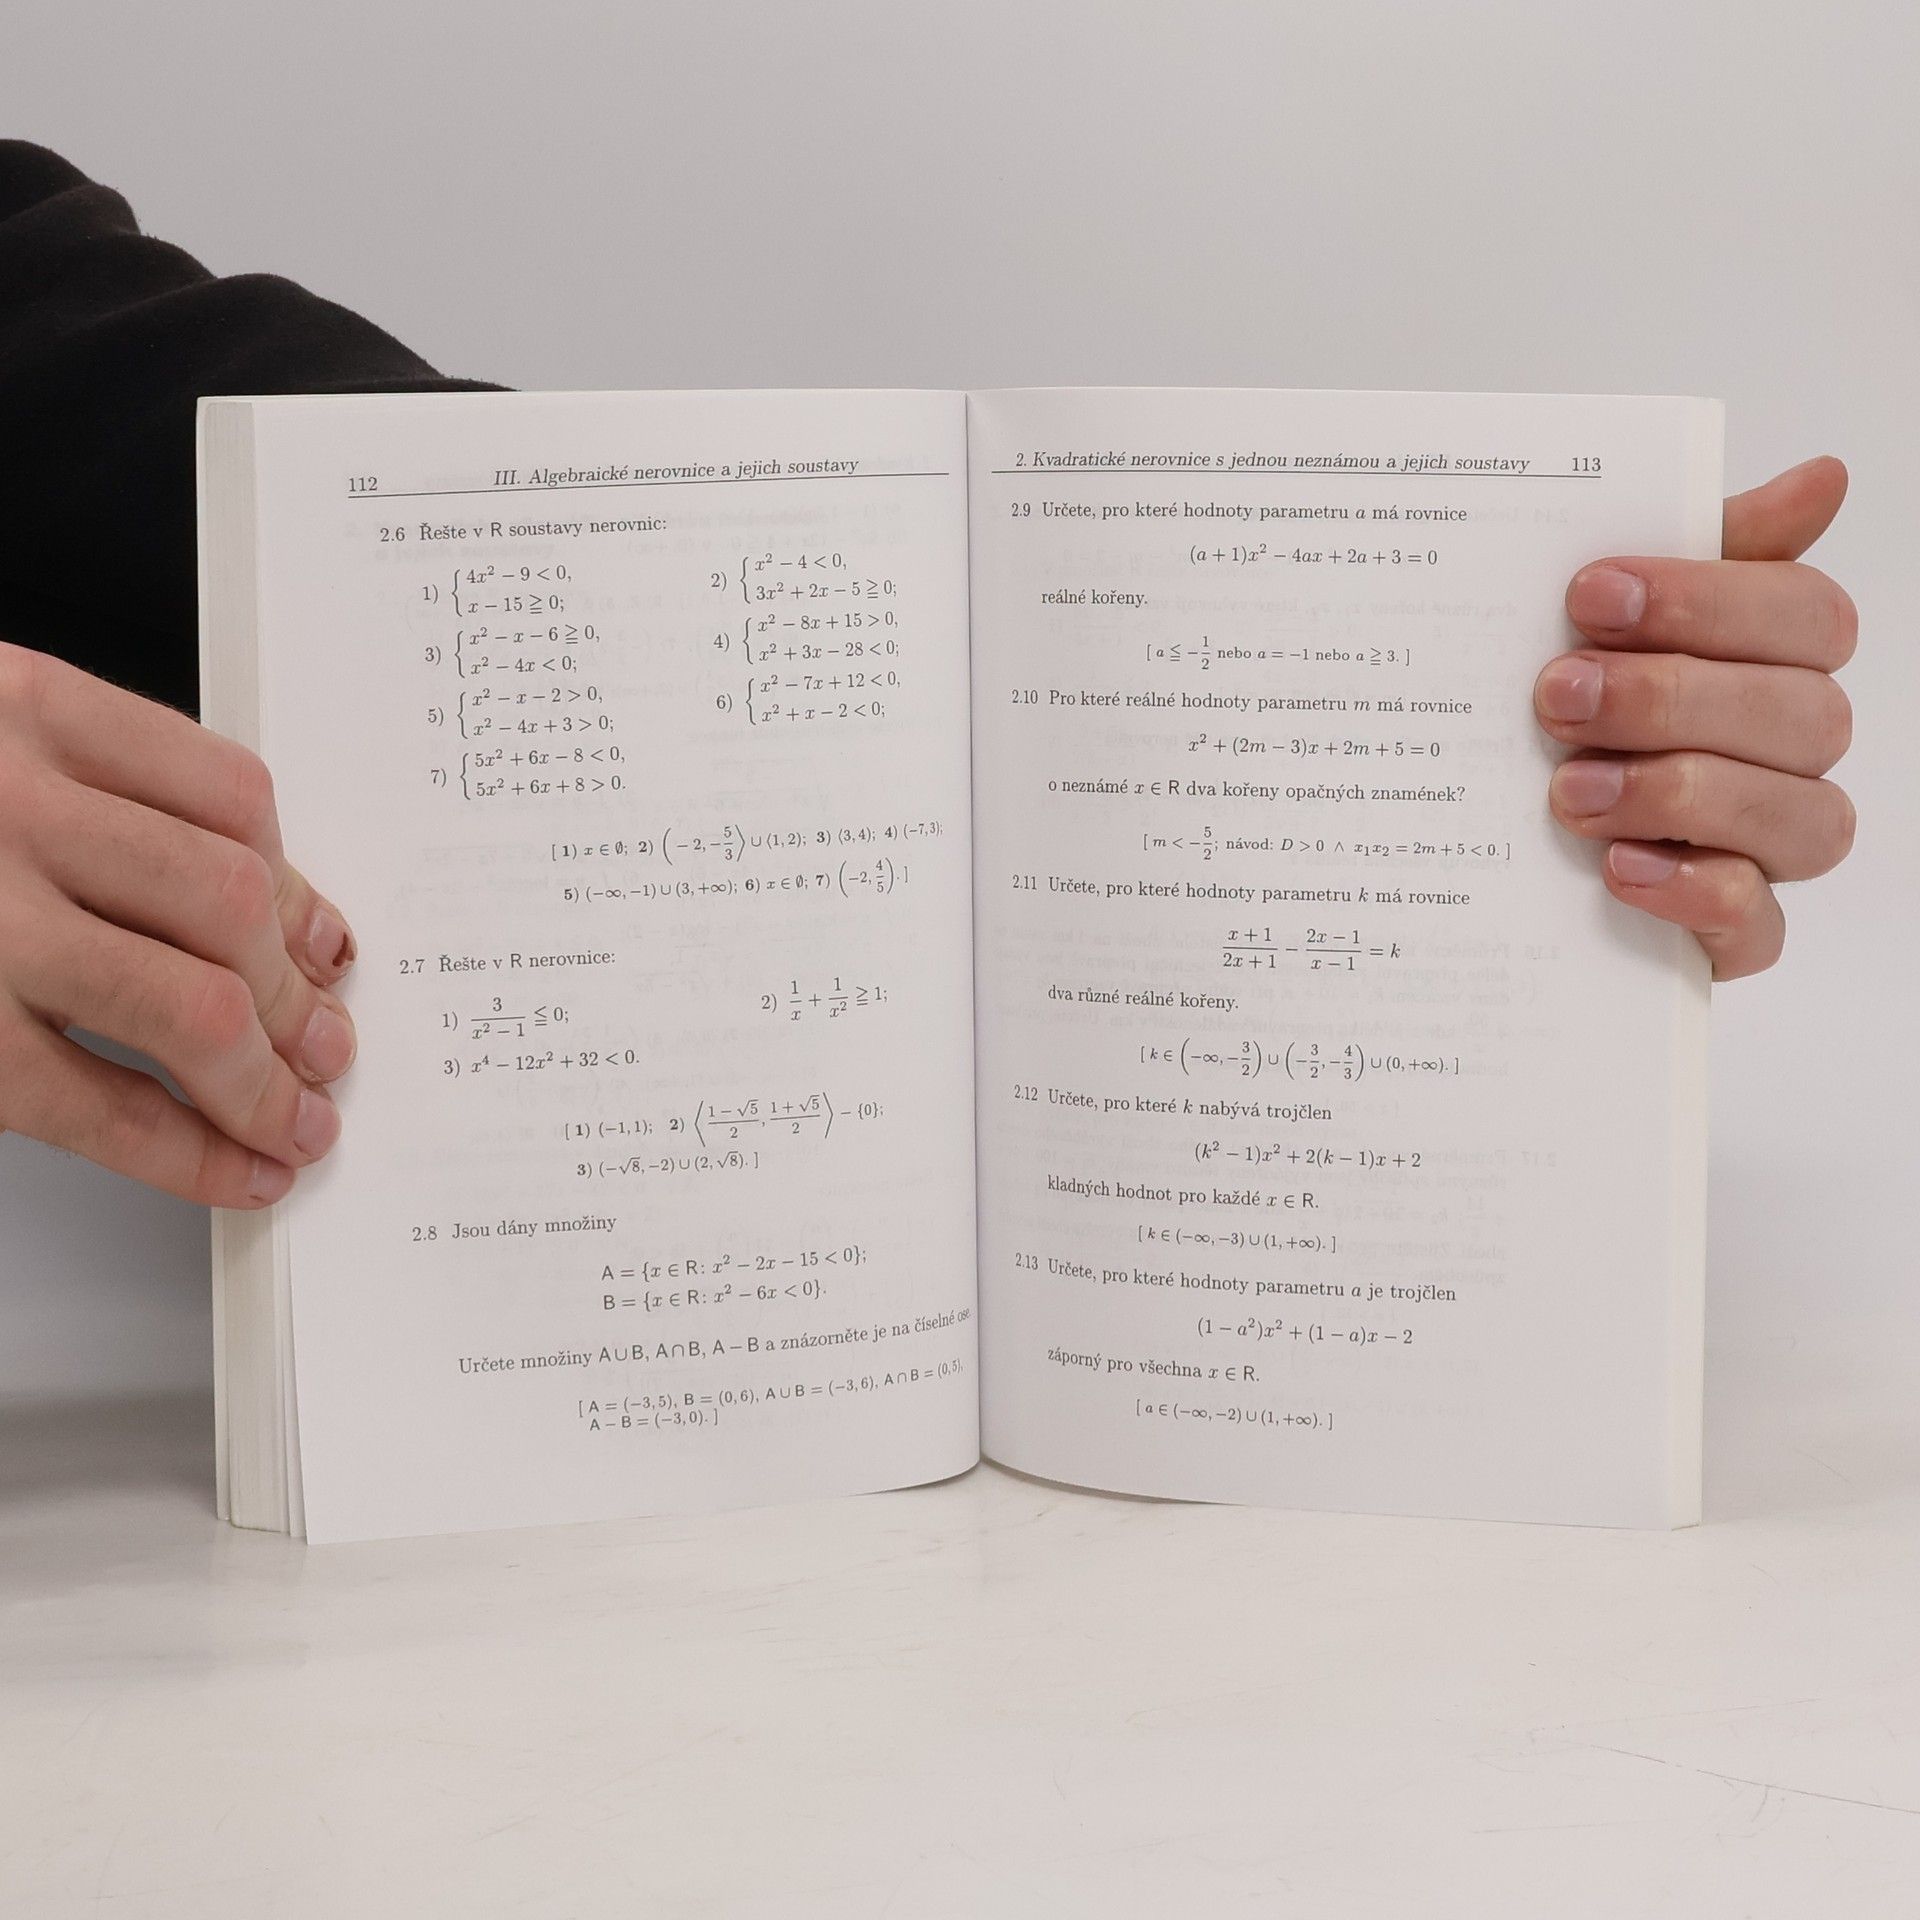 112 III. Algebraické nerovnice a jejich soustavy
2.6 Řešte v R soustavy nerovnic:
1) { 4x² − 9 < 0, x − 15 ≧ 0; 2) { x² − 4 < 0, 3x² + 2x − 5 ≧ 0;
3) { x² − x − 6 ≧ 0, x² − 4x < 0; 4) { x² − 8x + 15 > 0, x² + 3x − 28 < 0;
5) { x² − x − 2 > 0, x² − 4x + 3 > 0; 6) { x² − 7x + 12 < 0, x² + x − 2 < 0;
7) { 5x² + 6x − 8 < 0, 5x² + 6x + 8 > 0.
[ 1) x ∈ ∅; 2) (−2, −5/3⟩ ∪ ⟨1, 2); 3) ⟨3, 4); 4) (−7, 3);
5) (−∞, −1) ∪ (3, +∞); 6) x ∈ ∅; 7) (−2, 4/5). ]
2.7 Řešte v R nerovnice:
1) 3/(x² − 1) ≦ 0; 2) 1/x + 1/x² ≧ 1;
3) x⁴ − 12x² + 32 < 0.
[ 1) (−1, 1); 2) ⟨(1 − √5)/2, (1 + √5)/2⟩ − {0};
3) (−√8, −2) ∪ (2, √8). ]
2.8 Jsou dány množiny
A = {x ∈ R: x² − 2x − 15 < 0};
B = {x ∈ R: x² − 6x < 0}.
Určete množiny A∪B, A∩B, A − B a znázorněte je na číselné ose.
[ A = (−3, 5), B = (0, 6), A ∪ B = (−3, 6), A ∩ B = (0, 5),
A − B = (−3, 0⟩. ]
2. Kvadratické nerovnice s jednou neznámou a jejich soustavy 113
2.9 Určete, pro které hodnoty parametru a má rovnice
(a + 1)x² − 4ax + 2a + 3 = 0
reálné kořeny.
[ a ≦ −1/2 nebo a = −1 nebo a ≧ 3. ]
2.10 Pro které reálné hodnoty parametru m má rovnice
x² + (2m − 3)x + 2m + 5 = 0
o neznámé x ∈ R dva kořeny opačných znamének?
[ m < −5/2; návod: D > 0 ∧ x₁x₂ = 2m + 5 < 0. ]
2.11 Určete, pro které hodnoty parametru k má rovnice
(x + 1)/(2x + 1) − (2x − 1)/(x − 1) = k
dva různé reálné kořeny.
[ k ∈ (−∞, −3/2) ∪ (−3/2, −4/3) ∪ (0, +∞). ]
2.12 Určete, pro které k nabývá trojčlen
(k² − 1)x² + 2(k − 1)x + 2
kladných hodnot pro každé x ∈ R.
[ k ∈ (−∞, −3) ∪ (1, +∞). ]
2.13 Určete, pro které hodnoty parametru a je trojčlen
(1 − a²)x² + (1 − a)x − 2
záporný pro všechna x ∈ R.
[ a ∈ (−∞, −2) ∪ (1, +∞). ]